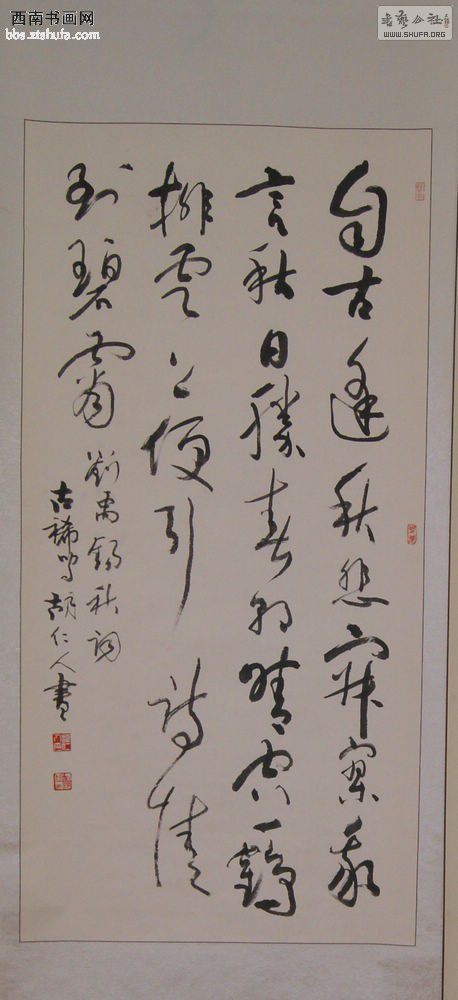 西南书画网
bbs.ztshufa.com
書藝公社
WWW.SHUFA.ORG
自古逢秋悲寂寥我
言秋日勝春朝晴空一鶴
排雲上便引詩情
到碧霄
劉禹錫秋詞
古稀叟胡仁人書